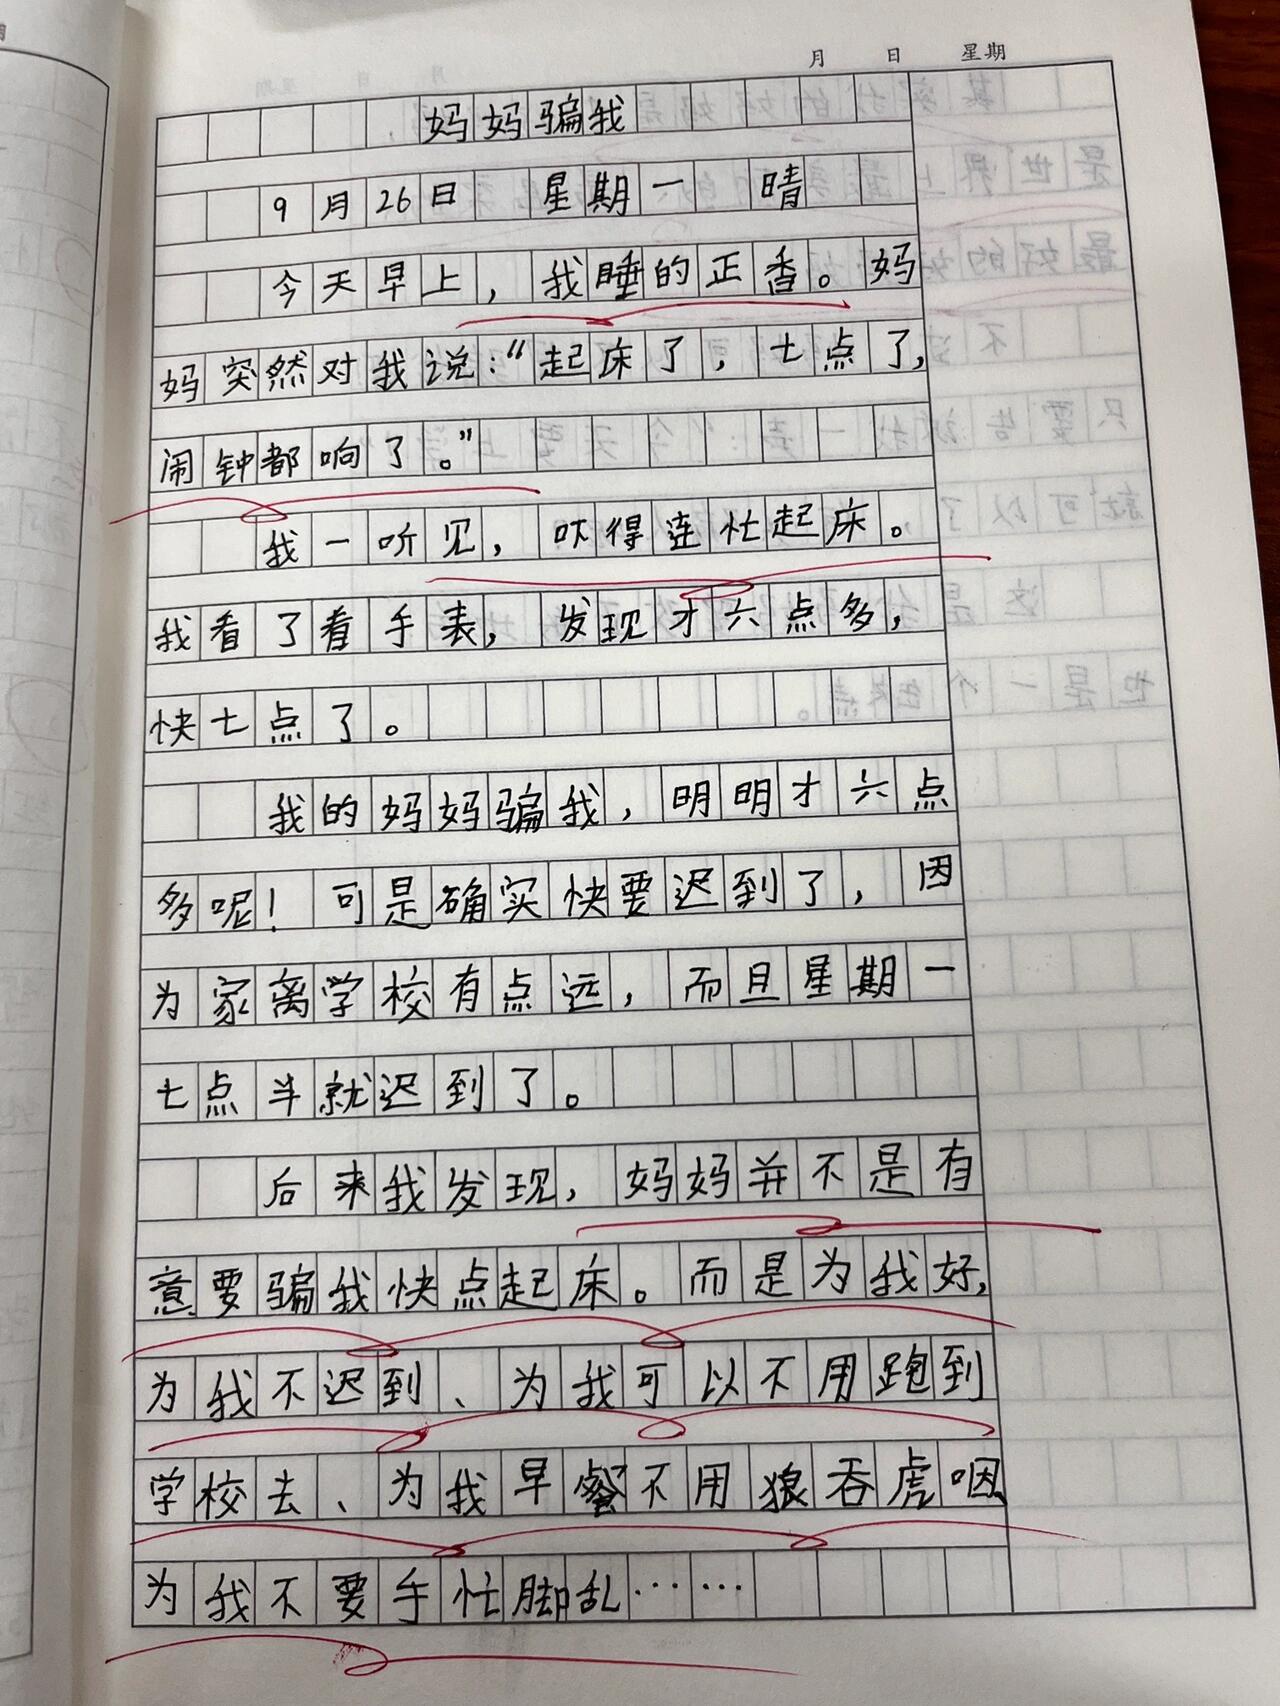 月 日 星期
妈妈骗我
9月26日 星期一 晴
今天早上，我睡的正香。妈
妈突然对我说：“起床了，七点了，
闹钟都响了。”
我一听见，吓得连忙起床。
我看了看手表，发现才六点多，
快七点了。
我的妈妈骗我，明明才六点
多呢！可是确实快要迟到了，因
为家离学校有点远，而且星期一
七点半就迟到了。
后来我发现，妈妈并不是有
意要骗我快点起床。而是为我好，
为我不迟到、为我可以不用跑到
学校去、为我早餐不用狼吞虎咽、
为我不要手忙脚乱……